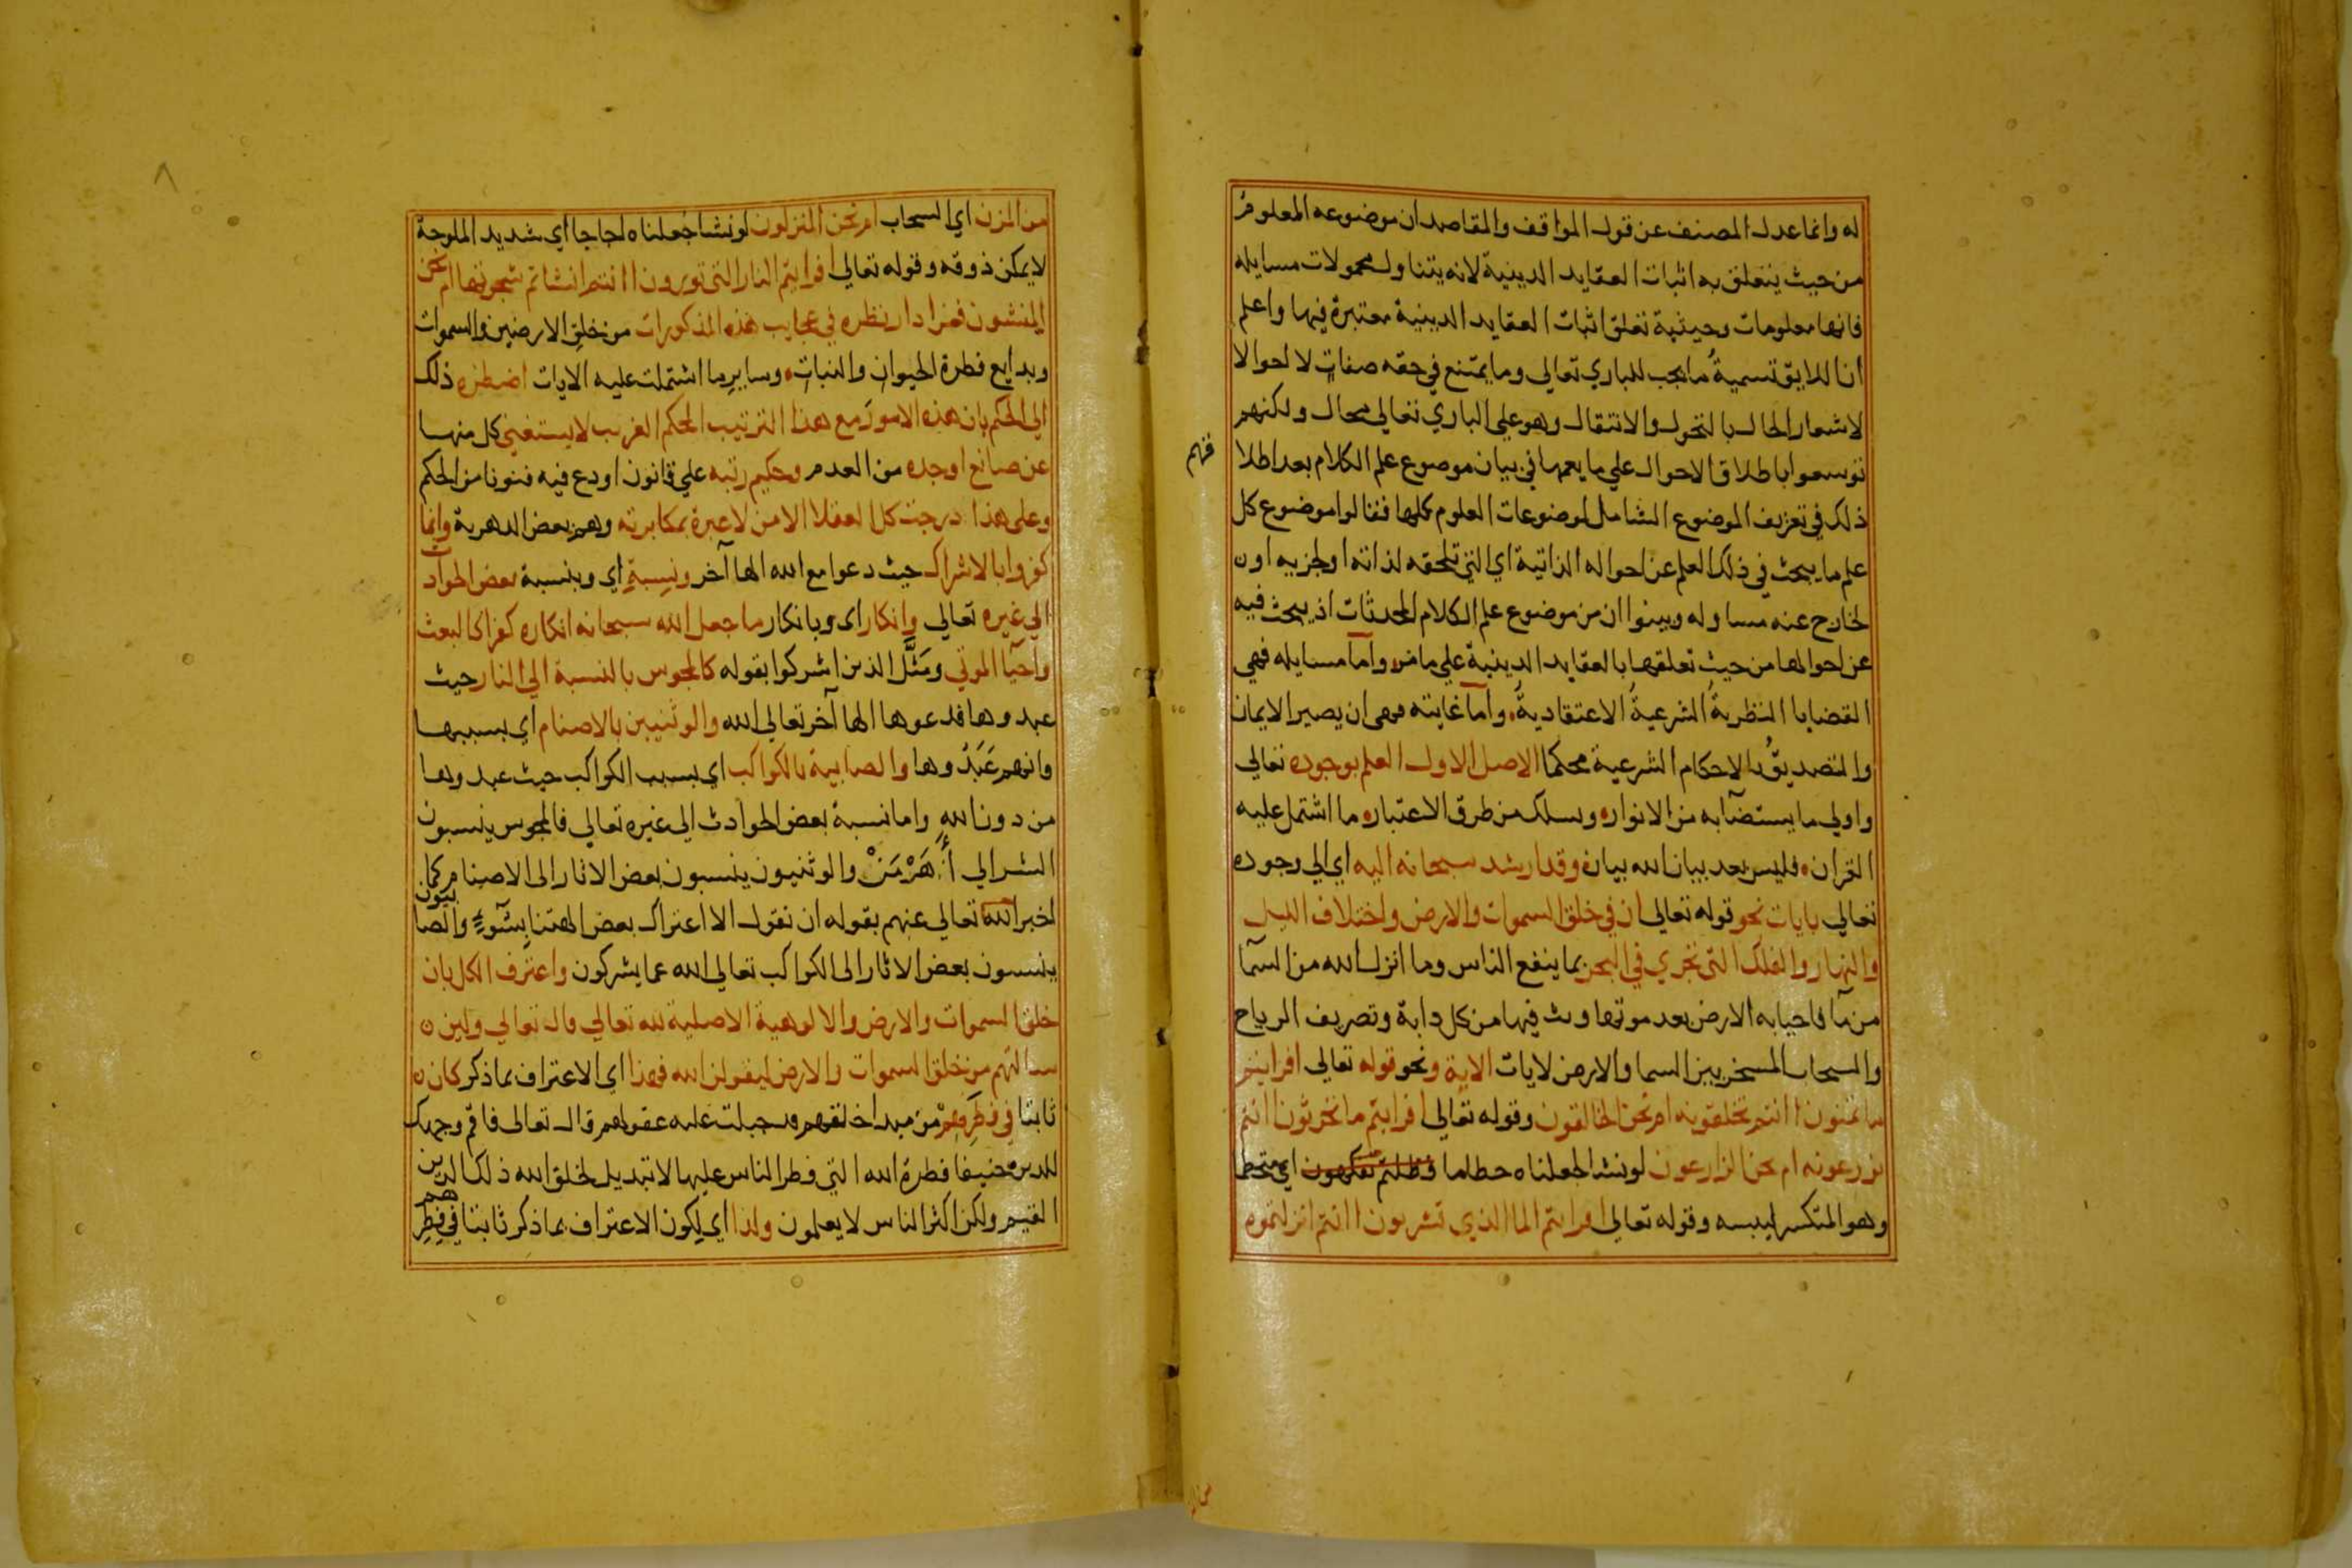 له وانما عدل المصنف عن قول المواقف والمقاصد ان موضوعه المعلوم
من حيث يتعلق به اثبات العقايد الدينية لانه يتناول محمولات مسايله
فانها معلومات وحيثية تعلق اثبات العقايد الدينية معتبرة فيها واعلم
ان اللايق تسمية ما يجب للباري تعالي وما يمتنع في حقه صفات لا احوالا
لاشعار الحال بالتحول والانتقال وهو علي الباري تعالي محال ولكنهم
توسعوا باطلاق الاحوال علي ما يعمها في بيان موضوع علم الكلام بعد اطلا
فهم
ذلك في تعريف الموضوع الشامل لموضوعات العلوم كلها فقالوا موضوع كل
علم ما يبحث في ذلك العلم عن احواله الذاتية اي التي تلحقه لذاته او لجزيه او
لخارج عنه مساو له وبينوا ان من موضوع علم الكلام المحدثات اذ يبحث فيه
عن احوالها من حيث تعلقها بالعقايد الدينية علي ما مر واما مسايله فهي
القضايا النظرية الشرعية الاعتقادية واما غايته فهي ان يصير الايمان
والتصديق بالاحكام الشرعية محكما الاصل الاول العلم بوجوده تعالي
واولي ما يستضآ به من الانوار وسلك من طرق الاعتبار ما اشتمل عليه
القران فليس بعد بيان الله بيان وقد ارشد سبحانه اليه اي الي وجوده
تعالي بايات نحو قوله تعالي ان في خلق السموات والارض واختلاف الليل
والنهار والفلك التي تجري في البحر بما ينفع الناس وما انزل الله من السمآ
من مآ فاحيا به الارض بعد موتها وبث فيها من كل دابة وتصريف الرياح
والسحاب المسخر بين السما والارض لايات الاية ونحو قوله تعالي افرايتم
ما تمنون اانتم تخلقونه ام نحن الخالقون وقوله تعالي افرايتم ما تحرثون اانتم
تزرعونه ام نحن الزارعون لو نشا لجعلناه حطاما فظلتم تفكهون اي
وهو المتكسر ليبسه وقوله تعالي افرايتم الما الذي تشربون اانتم انزلتموه
من المزن اي السحاب ام نحن المنزلون لو نشا جعلناه اجاجا اي شديد الملوحة
لا يمكن ذوقه وقوله تعالي افرايتم النار التي تورون اانتم انشاتم شجرتها ام نحن
المنشون فمن ادار نظره في عجايب هذه المذكورات من خلق الارضين والسموات
وبدايع فطرة الحيوان والنبات وساير ما اشتملت عليه الايات اضطره ذلك
الي الحكم بان هذه الامور مع هذا الترتيب المحكم الغريب لا يستغني كل منها
عن صانع اوجده من العدم وحكيم رتبه علي قانون اودع فيه فنونا من الحكم
وعلى هذا درجت كل العقلا الا من لا عبرة بمكابرته وهم بعض الدهرية وانما
كفروا بالاشراك حيث دعوا مع الله الها آخر ونسبة اي وبنسبة بعض الحوادث
الي غيره تعالي وانكار اى وبانكار ما جعل الله سبحانه انكاره كفرا كالبعث
واحيآ الموتي ومثل الذين اشركوا بقوله كالمجوس بالنسبة الي النار حيث
عبدوها فدعوها الها آخر تعالي الله والوثنيين بالاصنام اي بسببها
وانهم عبدوها والصابية بالكواكب اي بسبب الكواكب حيث عبدوها
من دون الله واما نسبة بعض الحوادث الي غيره تعالي فالمجوس ينسبون
الشر الي أهرمن والوثنيون ينسبون بعض الاثار الى الاصنام كما
اخبر الله تعالي عنهم بقوله ان نقول الا اعتراك بعض الهتنا بسوء والصابيون
ينسبون بعض الاثار الى الكواكب تعالي الله عما يشركون واعترف الكل بان
خلق السموات والارض والالوهية الاصلية لله تعالي قال تعالي ولين
سالتهم من خلق السموات والارض ليقولن الله فهذا اي الاعتراف بما ذكر كان
ثابتا في فطرهم من مبدا خلقهم قد جبلت عليه عقولهم قال تعالى فاقم وجهك
للدين حنيفا فطرة الله التي فطر الناس عليها لا تبديل لخلق الله ذلك الدين
القيم ولكن اكثر الناس لا يعلمون ولذا اي لكون الاعتراف بما ذكر ثابتا في فطرهم